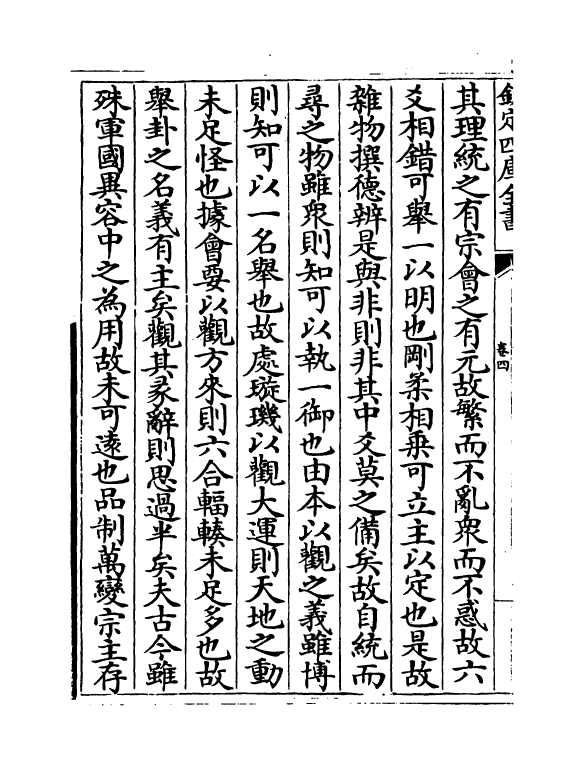 欽定四庫全書
卷四
其理統之有宗會之有元故繁而不亂衆而不惑故六
爻相錯可舉一以明也剛柔相乗可立主以定也是故
雜物撰德辨是與非則非其中爻莫之備矣故自統而
尋之物雖衆則知可以執一御也由本以觀之義雖博
則知可以一名舉也故處璇璣以觀大運則天地之動
未足怪也據會要以觀方來則六合輻輳未足多也故
舉卦之名義有主矣觀其彖辭則思過半矣夫古今雖
殊軍國異容中之為用故未可遠也品制萬變宗主存